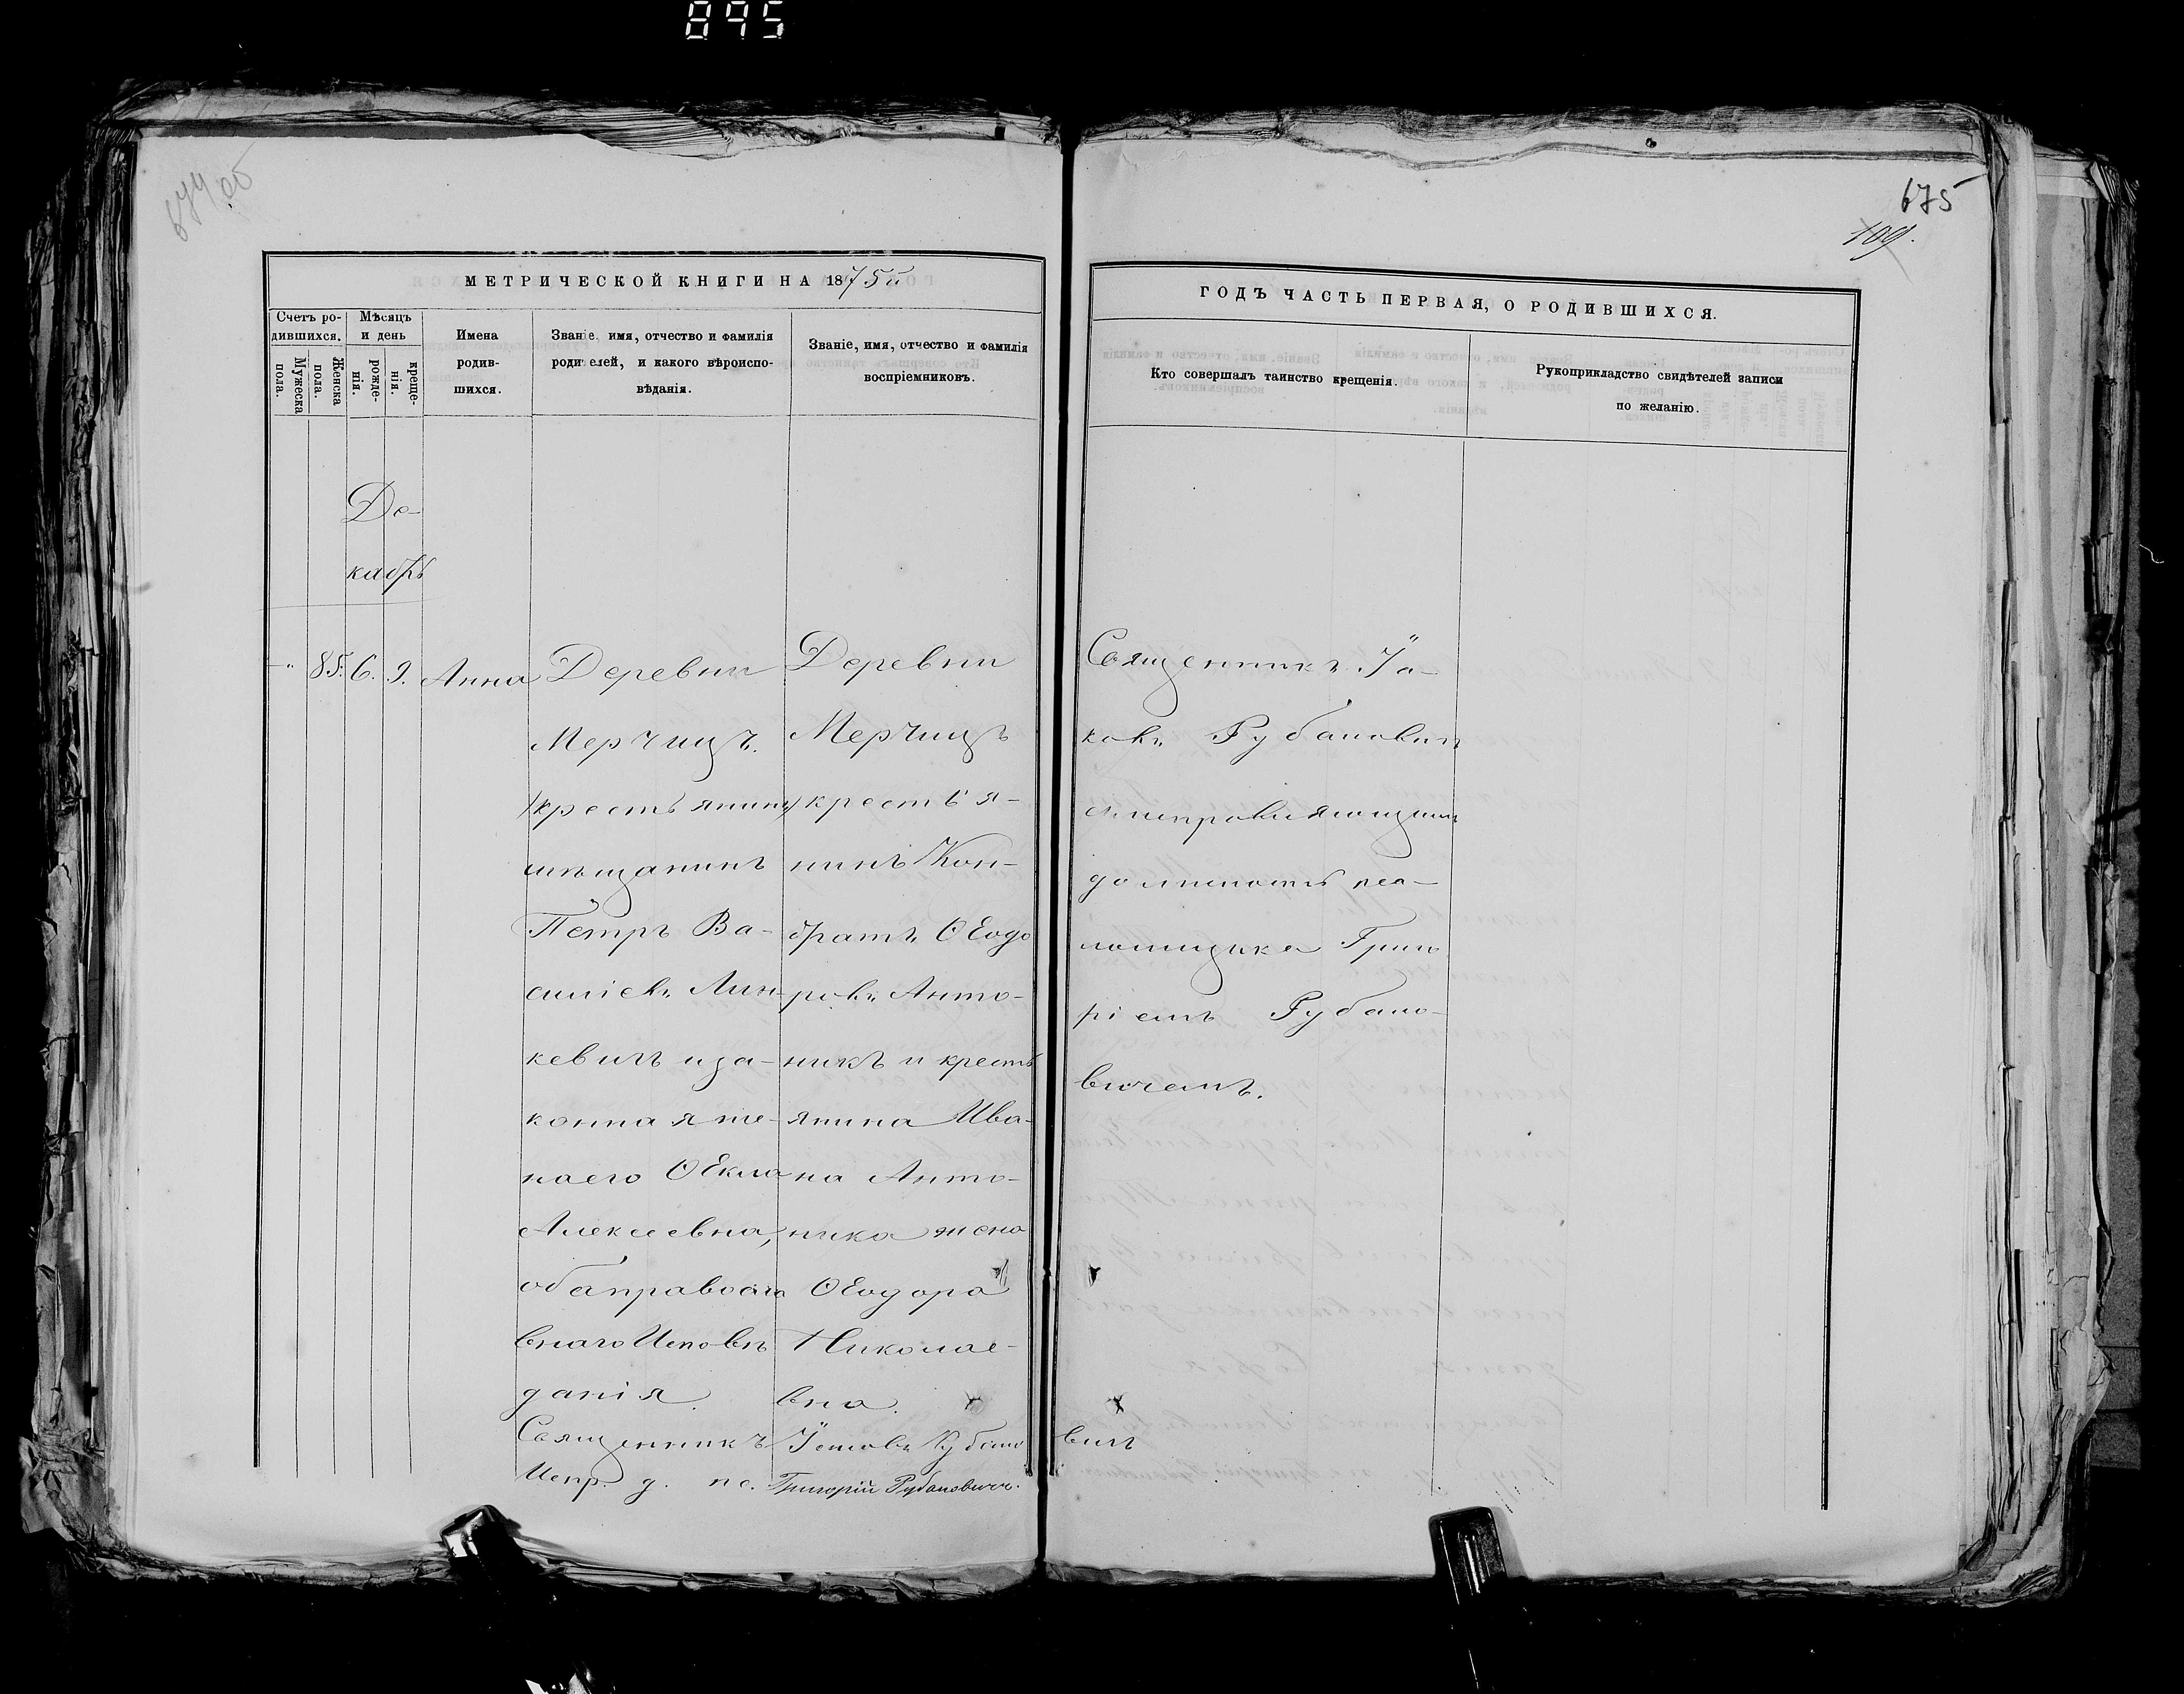 895
674 об
675
109.
МЕТРИЧЕСКОЙ КНИГИ НА 1875й
ГОДЪ ЧАСТЬ ПЕРВАЯ, О РОДИВШИХСЯ.
Счетъ ро-
дившихся.
Мужеска
пола.
Женска
пола.
Мѣсяцъ
и день
рожде-
нія.
креще-
нія.
Имена
родив-
шихся.
Званіе, имя, отчество и фамилія
родителей, и какого вѣроиспо-
вѣданія.
Званіе, имя, отчество и фамилія
воспріемниковъ.
Кто совершалъ таинство крещенія.
Рукоприкладство свидѣтелей записи
по желанію.
Де-
кабрь
-" 85. 6. 9. Анна
Деревни
Мерчицъ
крестьянинъ
мѣщанинъ
Петръ Ва-
силіевъ Лин-
кевичъ и за-
конная же-
на его Ѳекла
Алексеевна,
оба православ
внаго Исповѣ
данія.
Деревни
Мерчицъ
крестья-
нинъ Кон-
братъ Ѳеодо
ровъ Анто-
никъ и кресть
янина Ива-
на Анто-
ника жена
Ѳеодора
Николае-
вна.
Священникъ Іа-
ковъ Рубановичъ
съ исправляющимъ
должность пса-
ломщика Григо
ріемъ Рубано-
вичемъ.
Священникъ Іаковъ Рубано вичъ
Испр. д. пс. Григорій Рубановичъ.